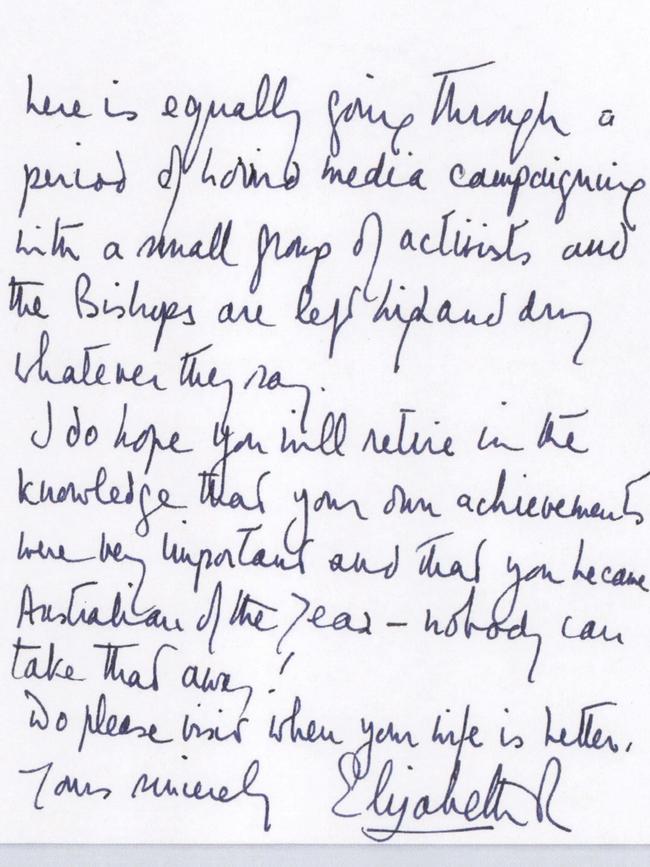 here is equally going through a
period of horrid media campaigning
with a small group of activists and
the Bishops are left high and dry
whatever they say.
I do hope you will retire in the
knowledge that your own achievements
were very important and that you became
Australian of the Year – nobody can
take that away!
Do please visit when your wife is better.
Yours sincerely Elizabeth R